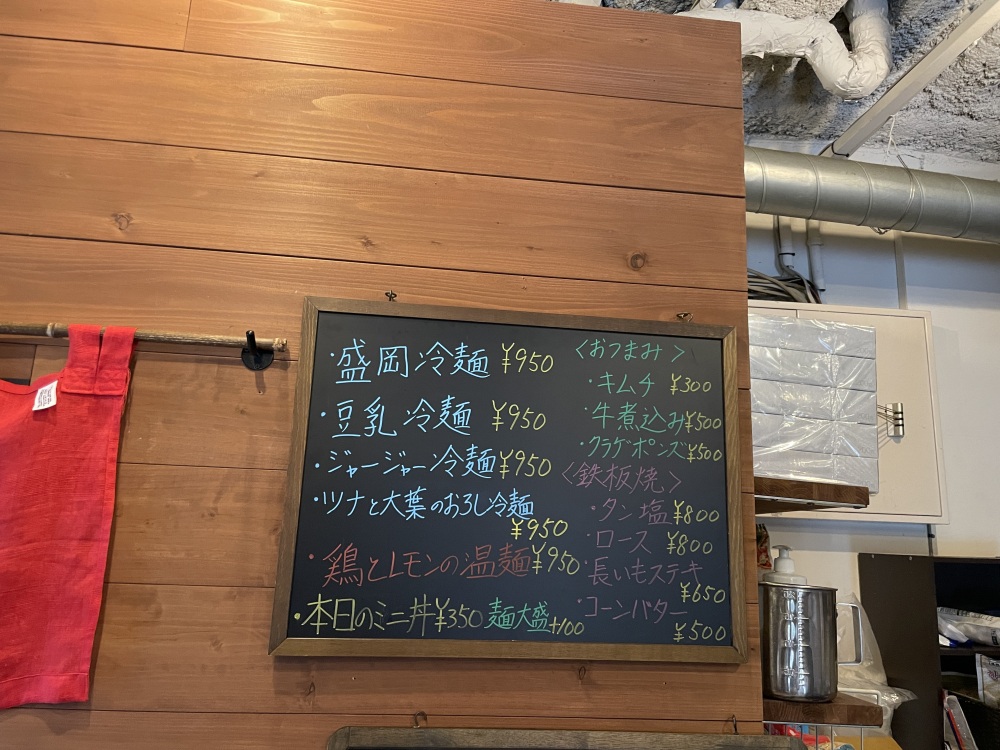 ・盛岡冷麺 ¥950
・豆乳冷麺 ¥950
・ジャージャー冷麺 ¥950
・ツナと大葉のおろし冷麺
¥950
・鶏とレモンの温麺 ¥950
・本日のミニ丼 ¥350 麺大盛+100
〈おつまみ〉
・キムチ ¥300
・牛煮込み ¥500
・クラゲポンズ ¥500
〈鉄板焼〉
・タン塩 ¥800
・ロース ¥800
・長いもステキ
¥650
・コーンバター
¥500